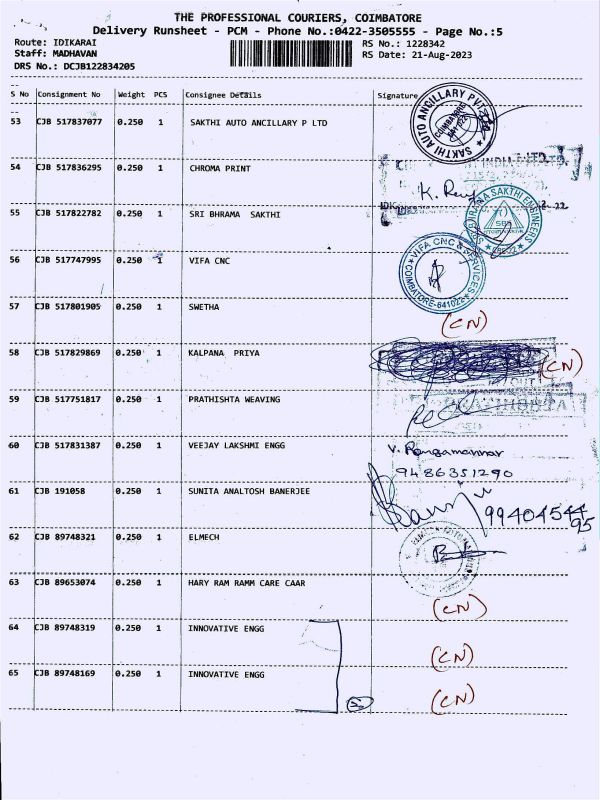 THE PROFESSIONAL COURIERS, COIMBATORE
Delivery Runsheet - PCM - Phone No.:0422-3505555 - Page No.:5
Route: IDIKARAI RS No.: 1228342
Staff: MADHAVAN RS Date: 21-Aug-2023
DRS No.: DCJB122834205
S No Consignment No Weight PCS Consignee Details Signature
53 CJB 517837077 0.250 1 SAKTHI AUTO ANCILLARY P LTD
SAKTHI AUTO ANCILLARY PVT
COIMBATORE
54 CJB 517836295 0.250 1 CHROMA PRINT
K.
55 CJB 517822782 0.250 1 SRI BHRAMA SAKTHI
SAKTHI ENGINEERS
56 CJB 517747995 0.250 1 VIFA CNC
VIFA CNC & SERVICES
COIMBATORE-641022
57 CJB 517801905 0.250 1 SWETHA
(CN)
58 CJB 517829869 0.250 1 KALPANA PRIYA
(CN)
59 CJB 517751817 0.250 1 PRATHISHTA WEAVING
60 CJB 517831387 0.250 1 VEEJAY LAKSHMI ENGG
V. Rangamannar
9486351290
61 CJB 191058 0.250 1 SUNITA ANALTOSH BANERJEE
99404544
95
62 CJB 89748321 0.250 1 ELMECH
63 CJB 89653074 0.250 1 HARY RAM RAMM CARE CAAR
(CN)
64 CJB 89748319 0.250 1 INNOVATIVE ENGG
(CN)
65 CJB 89748169 0.250 1 INNOVATIVE ENGG
(CN)